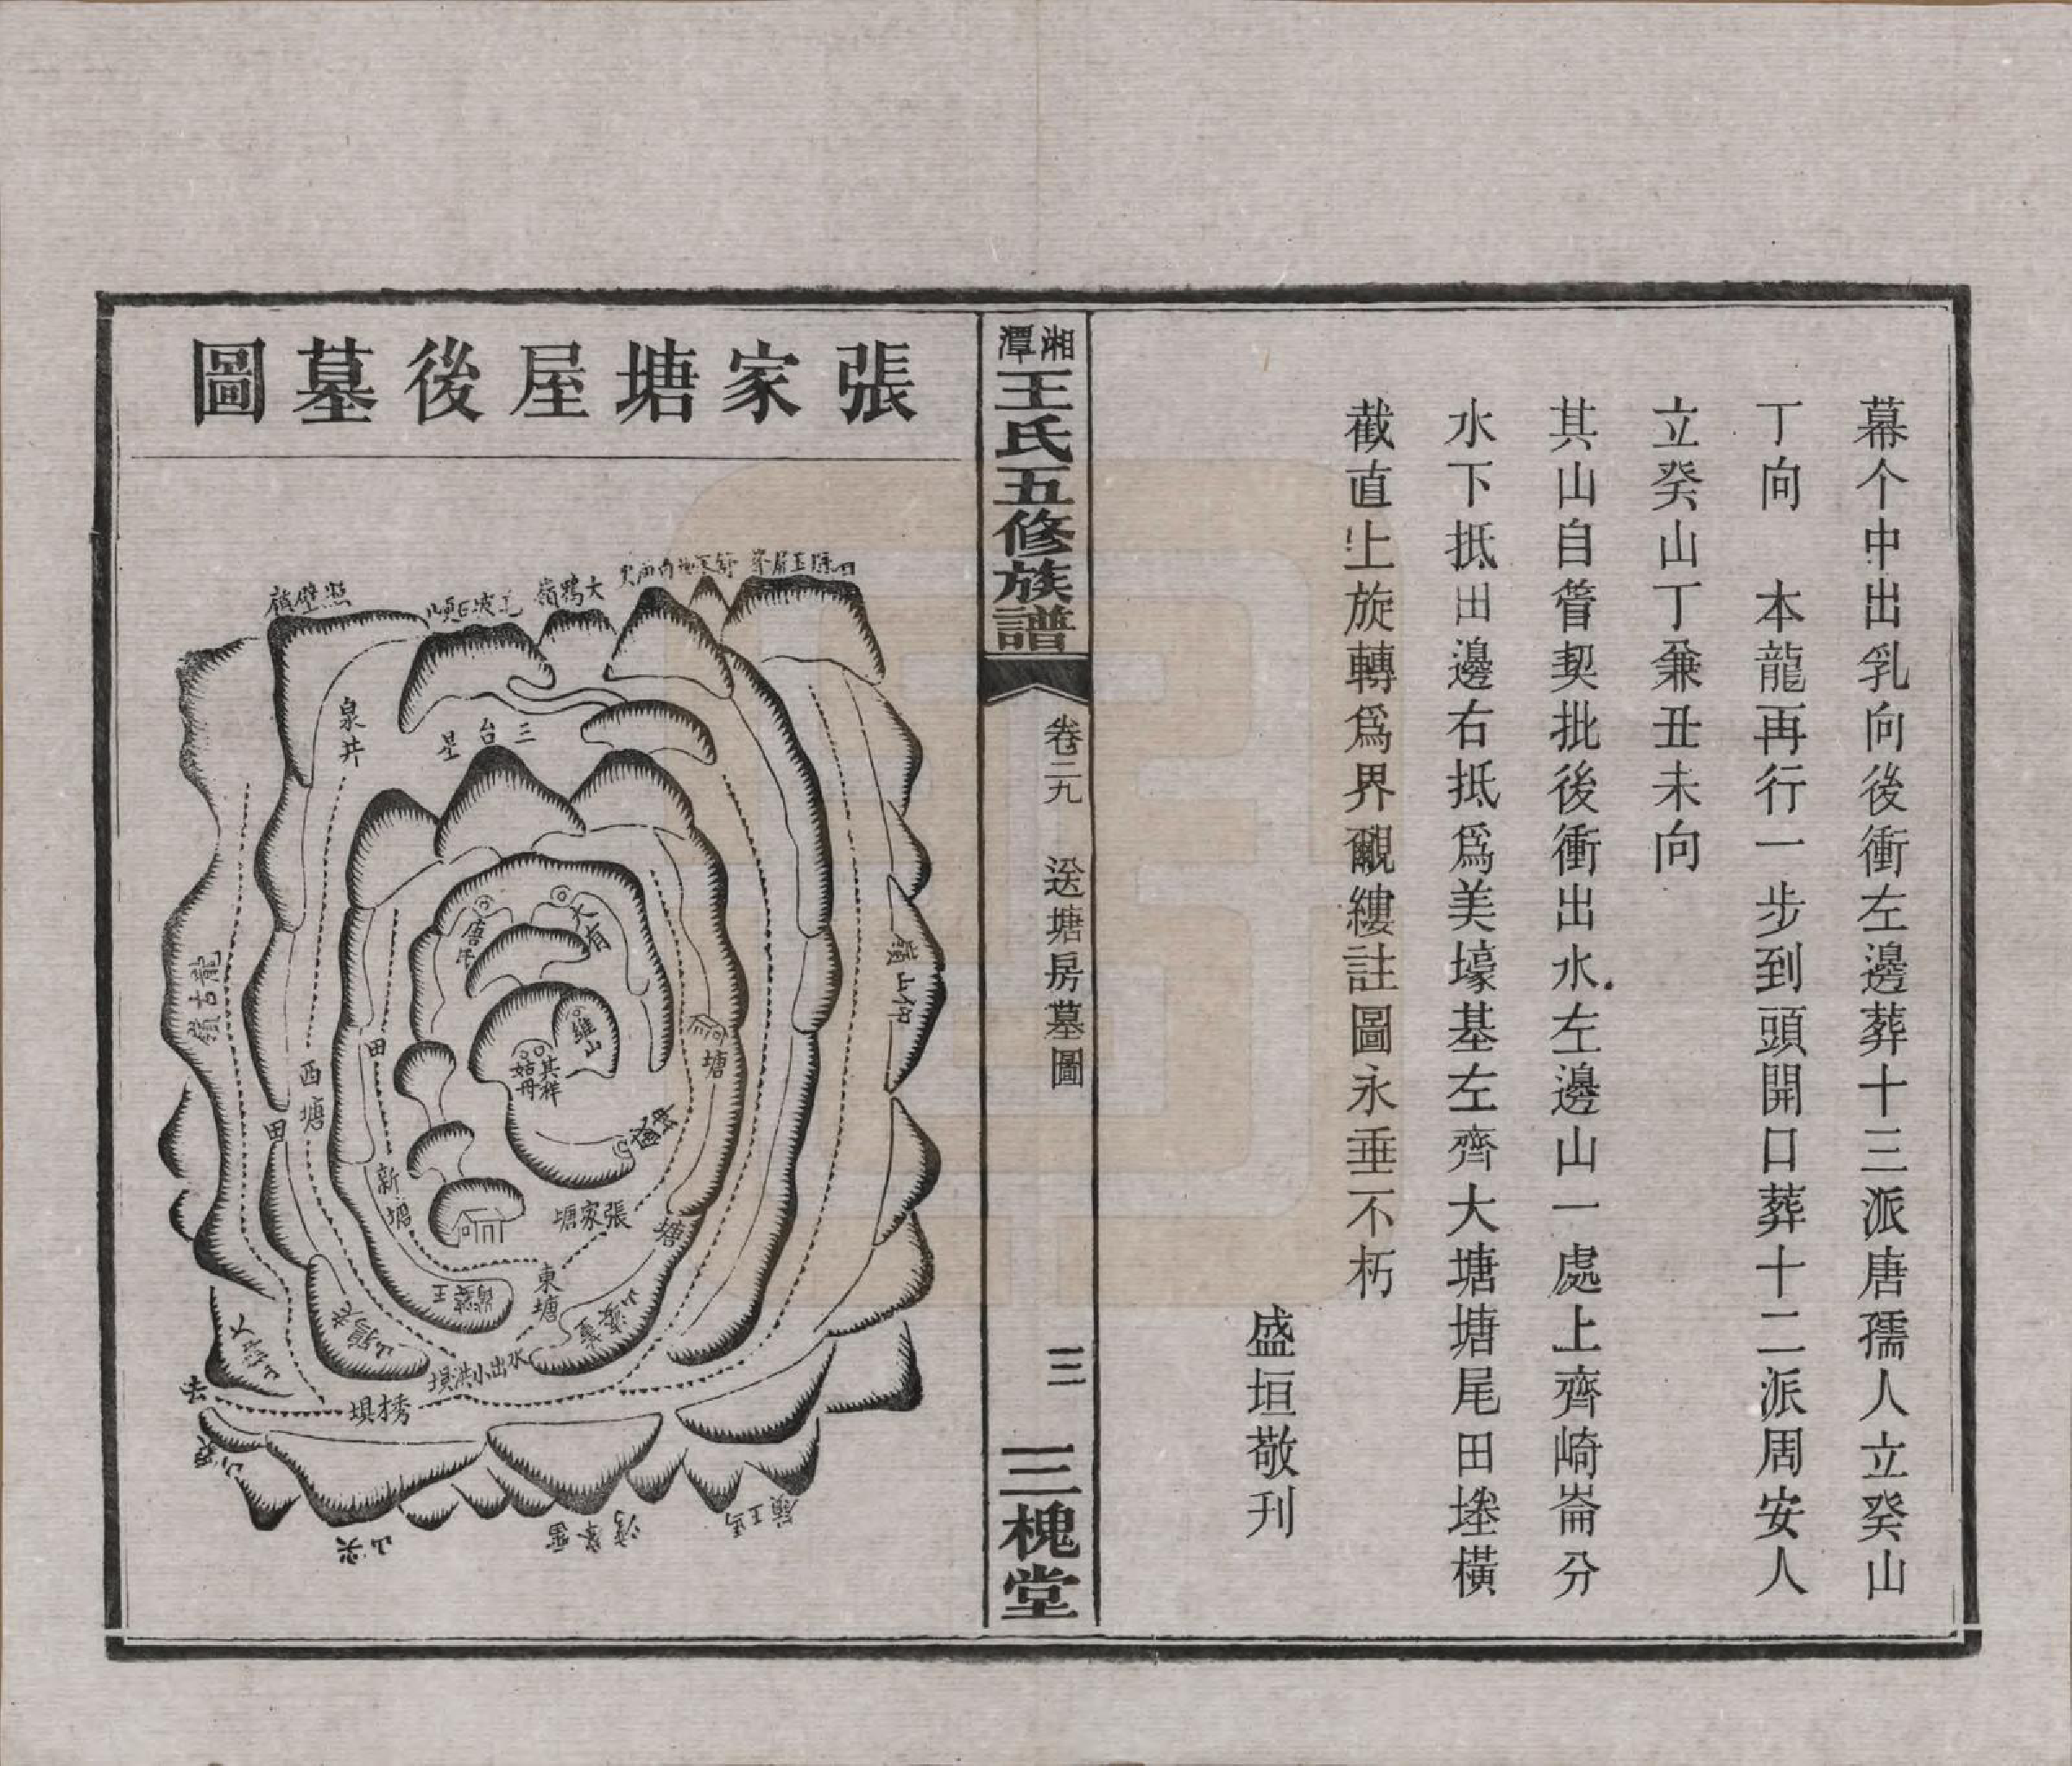 幕个中出乳向後衝左邊葬十三派唐孺人立癸山
丁向　本龍再行一步到頭開口葬十二派周安人
立癸山丁兼丑未向
其山自管契批後衝出水左邊山一處上齊崎崙分
水下抵田邊右抵爲美壕基左齊大塘塘尾田塍橫
截直上旋轉爲界覼縷註圖永垂不朽
盛垣敬刊
湘潭王氏五修族譜
卷二九　送塘房墓圖
三
三槐堂
張家塘屋後墓圖
大鴉嶺
照壁嶺
泉井
三台星
龍古嶺
仰山嶺
西塘
田
田
唐
大有
維山
其祥
姑冊
塘
新塘
張家塘
塘
東塘
水出小洪垻
垻
去
尖山